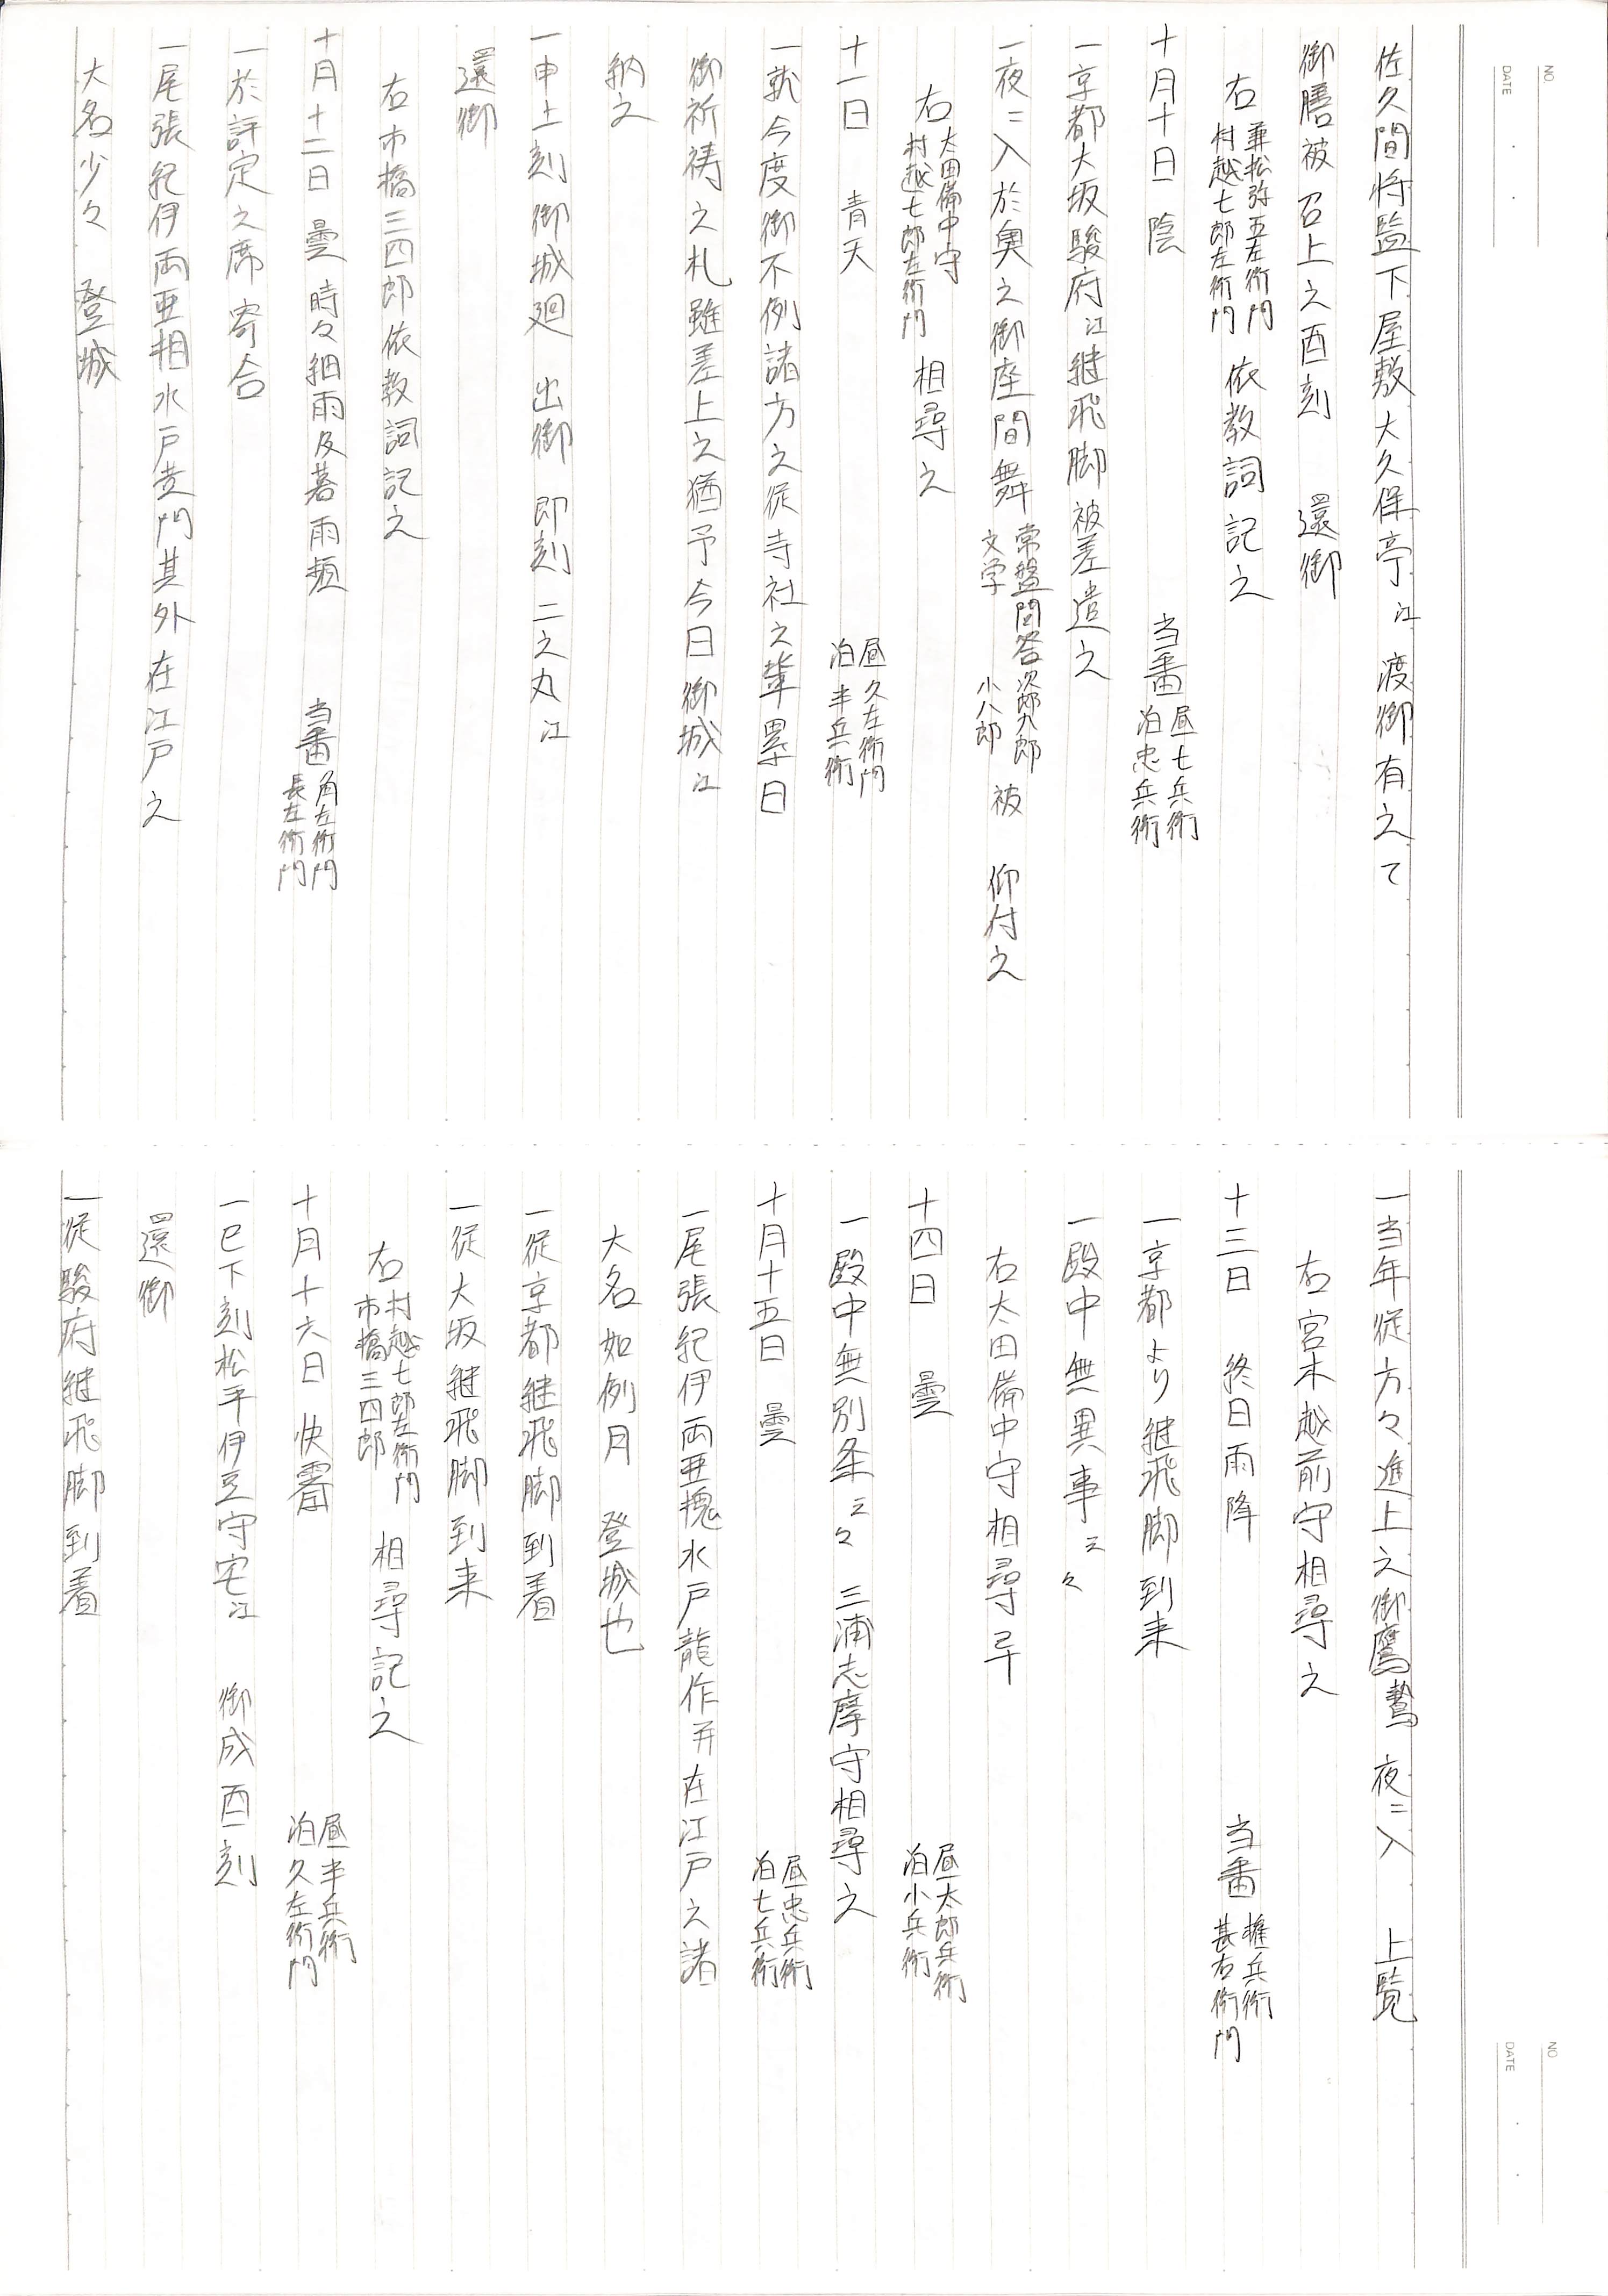 佐久間将監下屋敷大久保亭江渡御有之て
御膳被召上之酉刻　還御
右兼松弥五左衛門村越七郎左衛門依教詞記之
十月十日　陰　当番昼七兵衛泊忠兵衛
一京都大坂駿府江継飛脚被差遣之
一夜ニ入於奥之御座間舞常盤問答次郎九郎文学小八郎被　仰付之
右太田備中守村越七郎左衛門相尋之
十一日　青天　昼久左衛門泊半兵衛
一就今度御不例諸方之従寺社之輩累日
御祈祷之札雖差上之猶予今日御城江
納之
一申上刻御城廻　出御　即刻　二之丸江
還御
右市橋三四郎依教詞記之
十月十二日　曇　時々細雨及暮雨頻　当番角左衛門長左衛門
一於評定之席寄合
一尾張紀伊両亜相水戸黄門其外在江戸之
大名少々　登城
一当年従方々進上之御鷹鷙夜ニ入　上覧
右宮木越前守相尋之
十三日　終日雨降　当番権兵衛甚右衛門
一京都より継飛脚到来
一殿中無異事云々
右太田備中守相尋早
十四日　曇　昼太郎兵衛泊小兵衛
一殿中無別条云々　三浦志摩守相尋之
十月十五日　曇　昼忠兵衛泊七兵衛
一尾張紀伊両亜槐水戸龍作并在江戸之諸
大名如例月　登城也
一従京都継飛脚到着
一従大坂継飛脚到来
右村越七郎左衛門市橋三四郎　相尋記之
十月十六日　快霽　昼半兵衛泊久左衛門
一巳下刻松平伊豆守宅江　御成酉刻
還御
一従駿府継飛脚到着
NO
DATE
NO
DATE